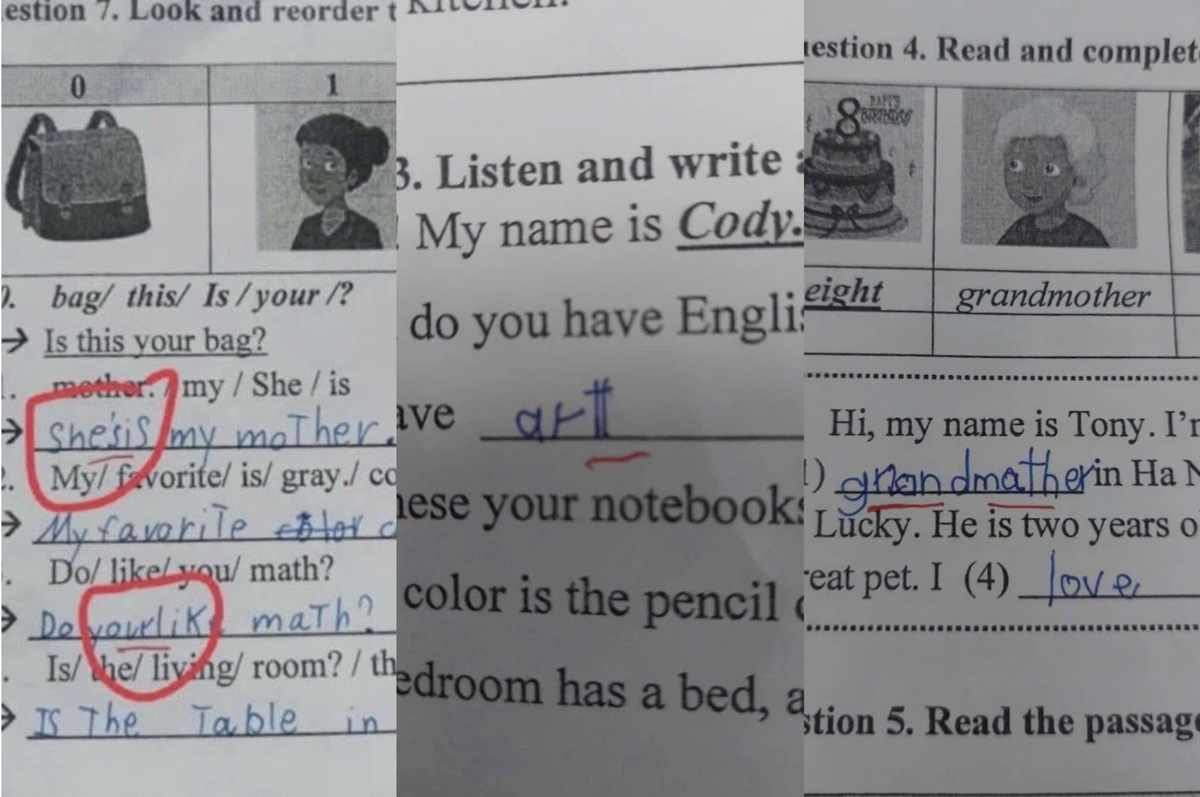 estion 7. Look and reorder t
0 1
bag/ this/ Is / your /?
→ Is this your bag?
mother. / my / She / is
→ she'sis my moTher.
My/ favorite/ is/ gray./ co
→ My favoriTe color c
Do/ like/ you/ math?
→ Do yourlike maTh?
Is/ the/ living/ room? / th
→ Is The Table in
3. Listen and write a
My name is Cody.
do you have Englis
ave art
hese your notebooks
color is the pencil
edroom has a bed, a
uestion 4. Read and complet
8 HAPPY BIRTHDAY
eight grandmother
Hi, my name is Tony. I'm
) grandmather in Ha N
Lucky. He is two years o
reat pet. I (4) love
stion 5. Read the passage